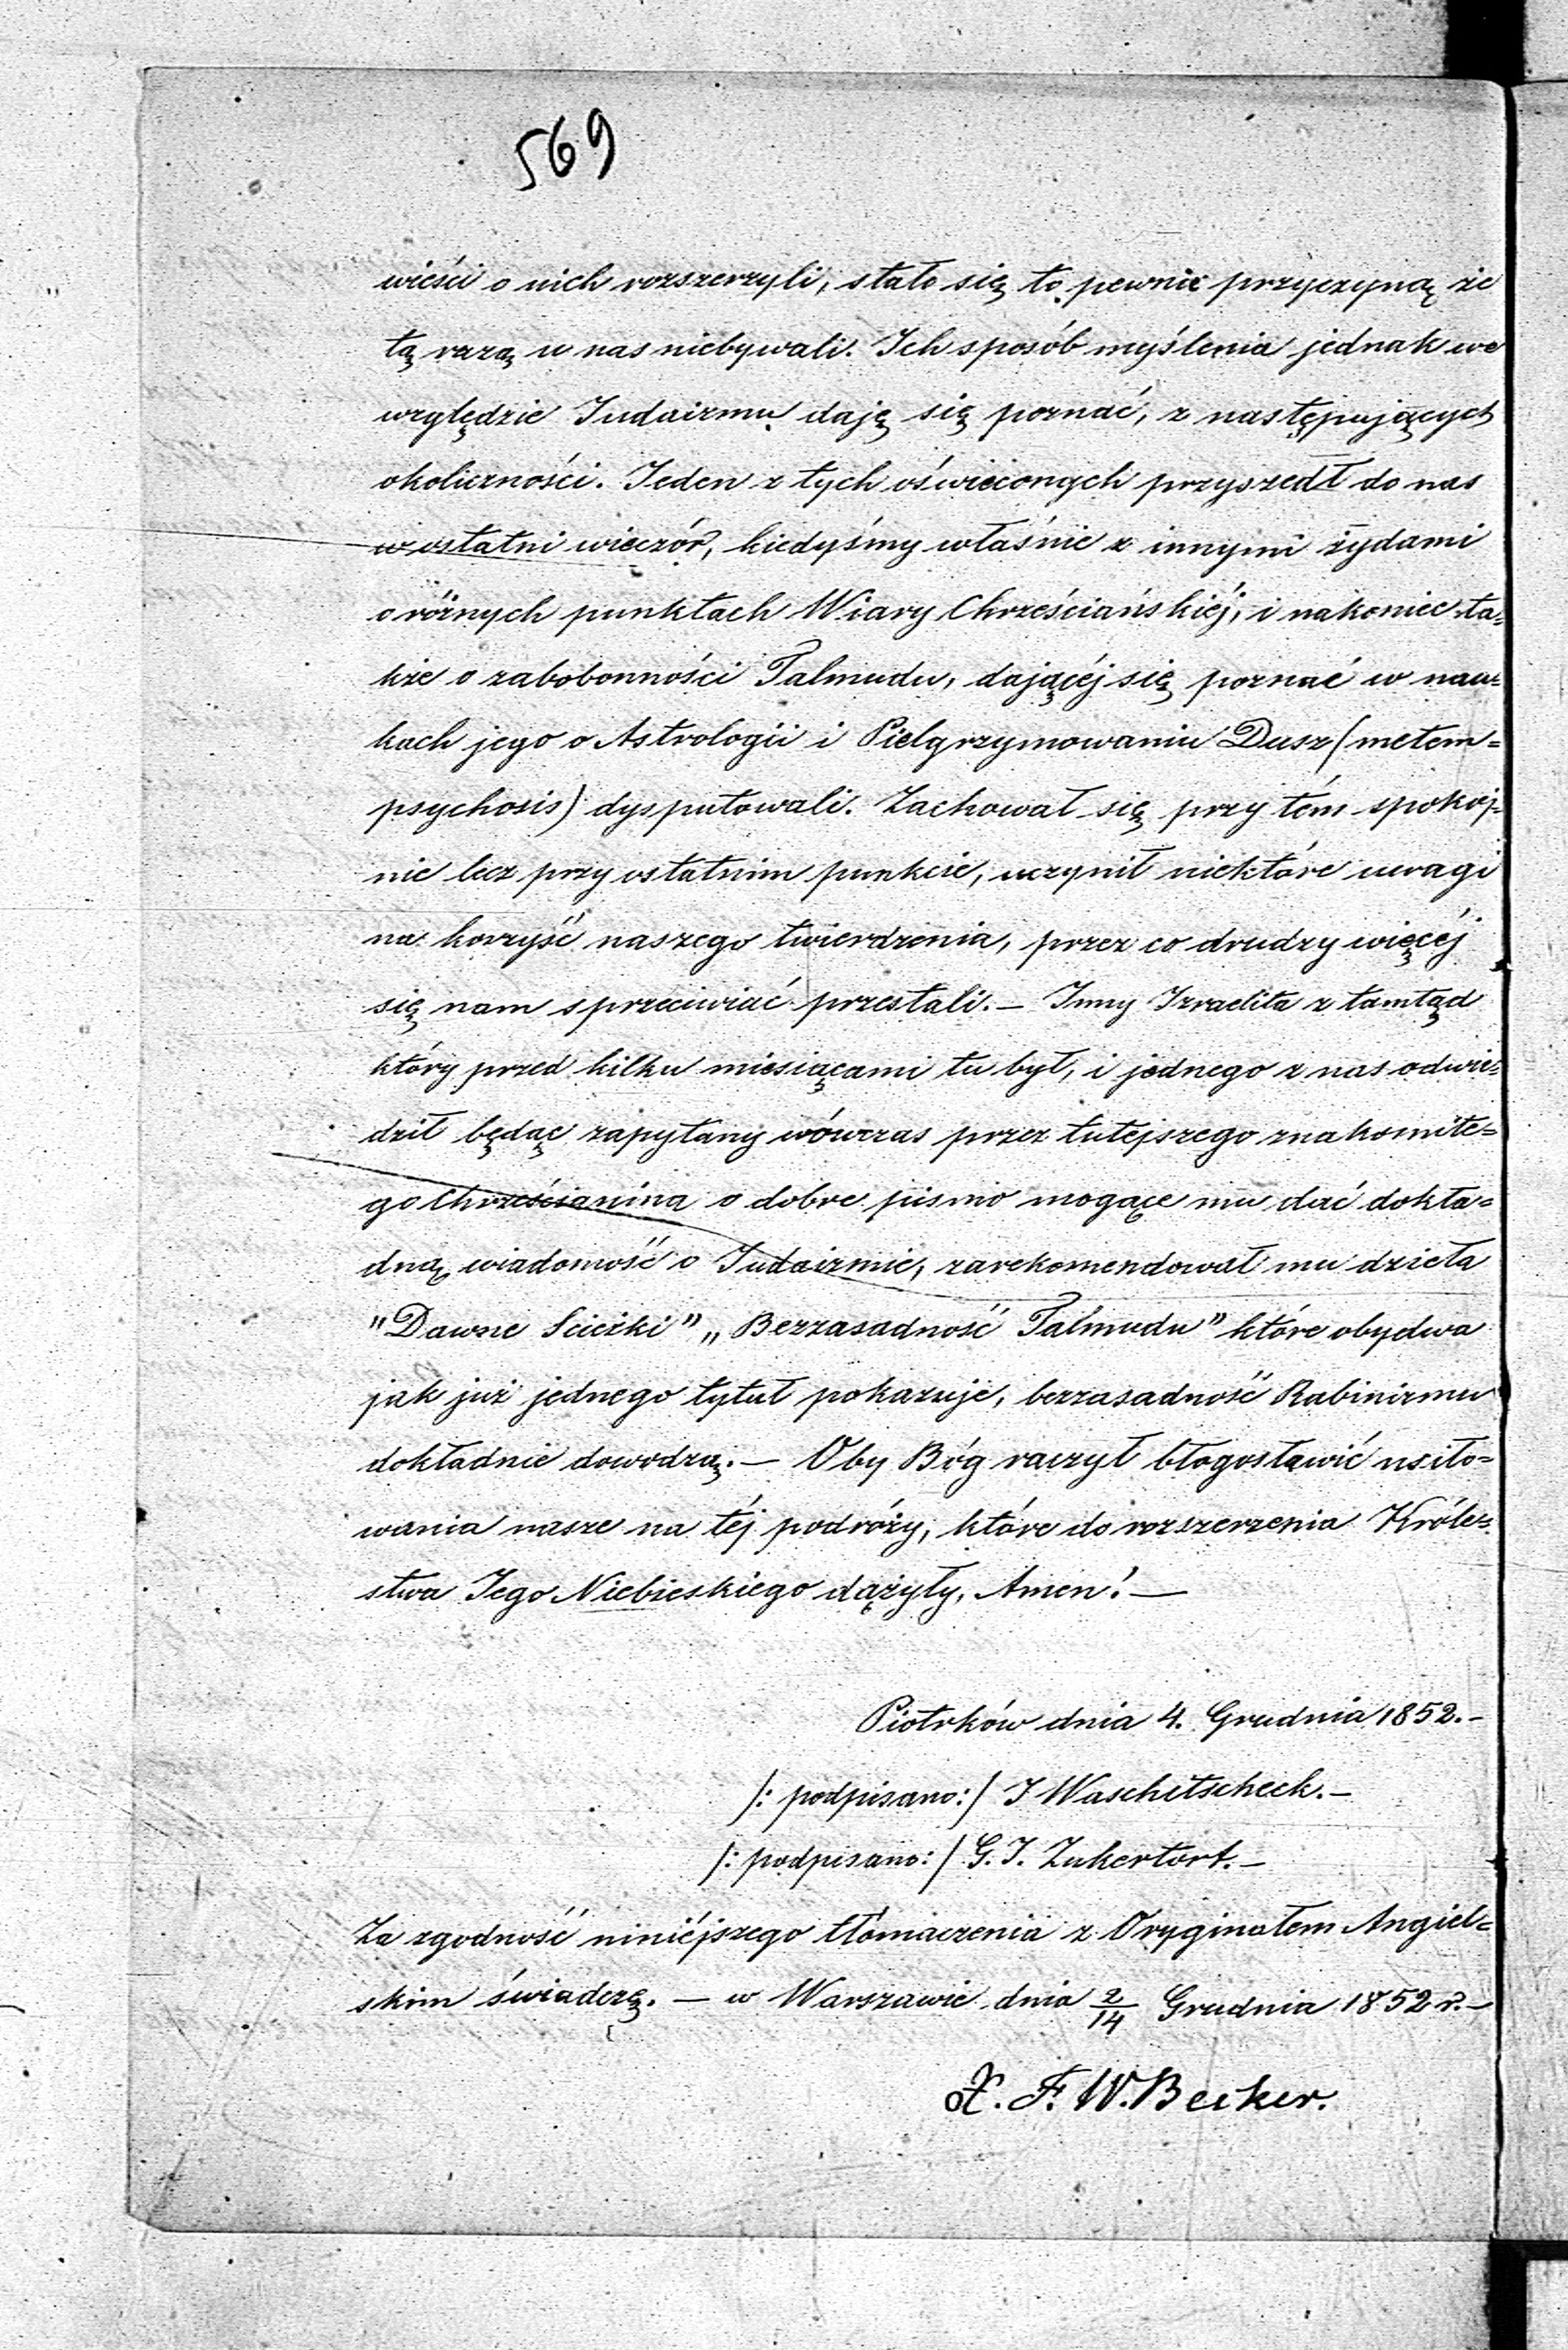 569
wieści o nich rozszerzyli, stało się to pewnie przyczyną że
tą razą u nas niebywali. Ich sposób myślenia jednak we
względzie Judaizmu daję się poznać, z następujących
okoliczności. Jeden z tych oświeconych przyszedł do nas
w ostatni wieczór, kiedyśmy właśnie z innymi żydami
o różnych punktach Wiary Chrześciańskiéj, i nakoniec ta=
kże o zabobonności Talmudu, dającéj się poznać w nau=
kach jego o Astrologii i Pielgrzymowaniu Dusz (metem=
psychosis) dysputowali. Zachował się przy tém spokoj=
nie lecz przy ostatnim punkcie, uczynił niektóre uwagi
na korzyść naszego twierdzenia, przez co drudzy więcéj
się nam sprzeciwiać przestali. — Inny Izraelita z tamtąd
który przed kilku miesiącami tu był, i jednego z nas odwie=
dził będąc zapytany wówczas przez tutejszego znakomite=
go Chrześcianina o dobre pismo mogące mu dać dokła=
dną wiadomość o Judaizmie, zarekomendował mu dzieła
"Dawne Scieżki" „Bezzasadność Talmudu" które obydwa
jak już jednego tytuł pokazuje, bezzasadność Rabinizmu
dokładnie dowodzą. — Oby Bóg raczył błogosławić usiło=
wania nasze na téj podróży, które do rozszerzenia Króle=
stwa Jego Niebieskiego dążyły, Amen! —
Piotrków dnia 4. Grudnia 1852. —
/: podpisano :/ J Waschitscheck. —
/: podpisano :/ G. J. Zukertort. —
Za zgodność niniéjszego tłómaczenia z Oryginałem Angiel=
skim świadczę. — w Warszawie dnia 2/14 Grudnia 1852 r. —
X. F. W. Becker.